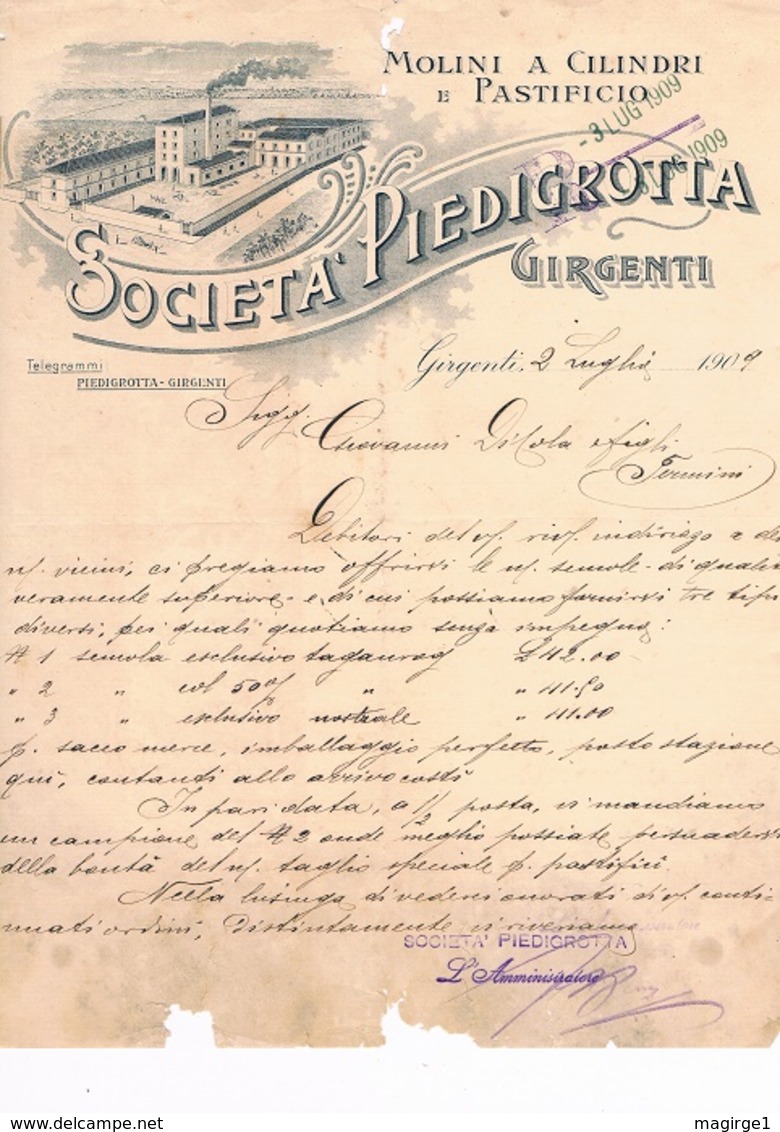 MOLINI A CILINDRI
E PASTIFICIO
- 3 LUG 1909
LUG 1909
SOCIETA' PIEDIGROTTA
GIRGENTI
Telegrammi
PIEDIGROTTA - GIRGENTI
Girgenti, 2 Luglio 1909
Sigg. Giovanni Di Cola e figli
Termini
Debitori del vs. rivs. indirizzo a dei
ns. vicini, ci pregiamo offrirvi le ns. semole - di qualità
veramente superiore - e di cui possiamo fornirvi tre tipi
diversi, pei quali quotiamo senza impegno:
# 1 semola esclusivo taganrog £ 42.00
" 2 " col 50% " " 41.50
" 3 " esclusivo nostrale " 41.00
p. sacco merce, imballaggio perfetto, posto stazione
qui, contanti allo arrivo costì
In pari data, a 1/2 posta, vi mandiamo
un campione del # 2 onde meglio possiate persuadervi
della bontà del ns. taglio speciale p. pastifici.
Nella lusinga di vederci onorati di vs. conti-
nuati ordini, Distintamente vi riveriamo
SOCIETA' PIEDIGROTTA
L'Amministratore
magirge1